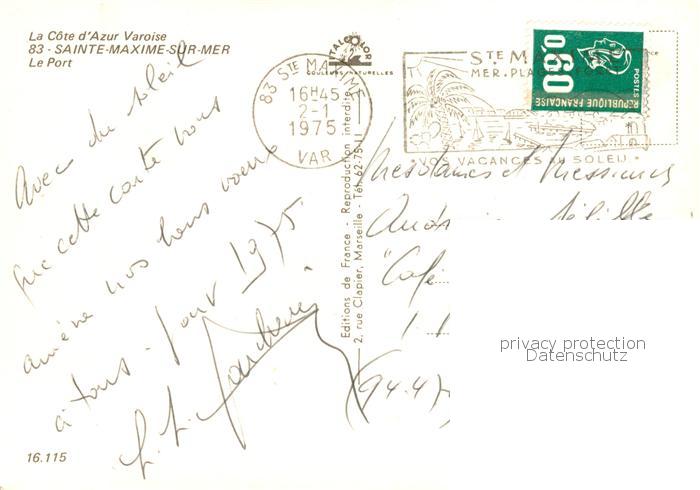 La Côte d'Azur Varoise
83 - SAINTE-MAXIME-SUR-MER
Le Port
ITALCOLOR
COULEURS NATURELLES
83 STE MAXIME
16H45
2-1
1975
VAR
STE MA
MER. PLAGE
VOS VACANCES AU SOLEIL
0,60
POSTES
REPUBLIQUE FRANÇAISE
Avec du soleil
que cette carte vous
amène nos bons voeux
à tous. pour 1975
Editions de France - Reproduction interdite
2, rue Clapier, Marseille - Tél. 62-75-11
Mesdames et Messieurs
André
"Café
(94.4
privacy protection
Datenschutz
16.115